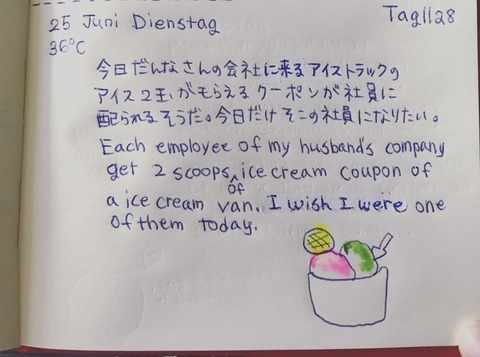 25 Juni Dienstag
Tag1128
36°C
今日だんなさんの会社に来るアイストラックの
アイス2玉がもらえるクーポンが社員に
配られるそうだ。今日だけそこの社員になりたい。
Each employee of my husband's company
get 2 scoops of ice cream coupon of
a ice cream van. I wish I were one
of them today.